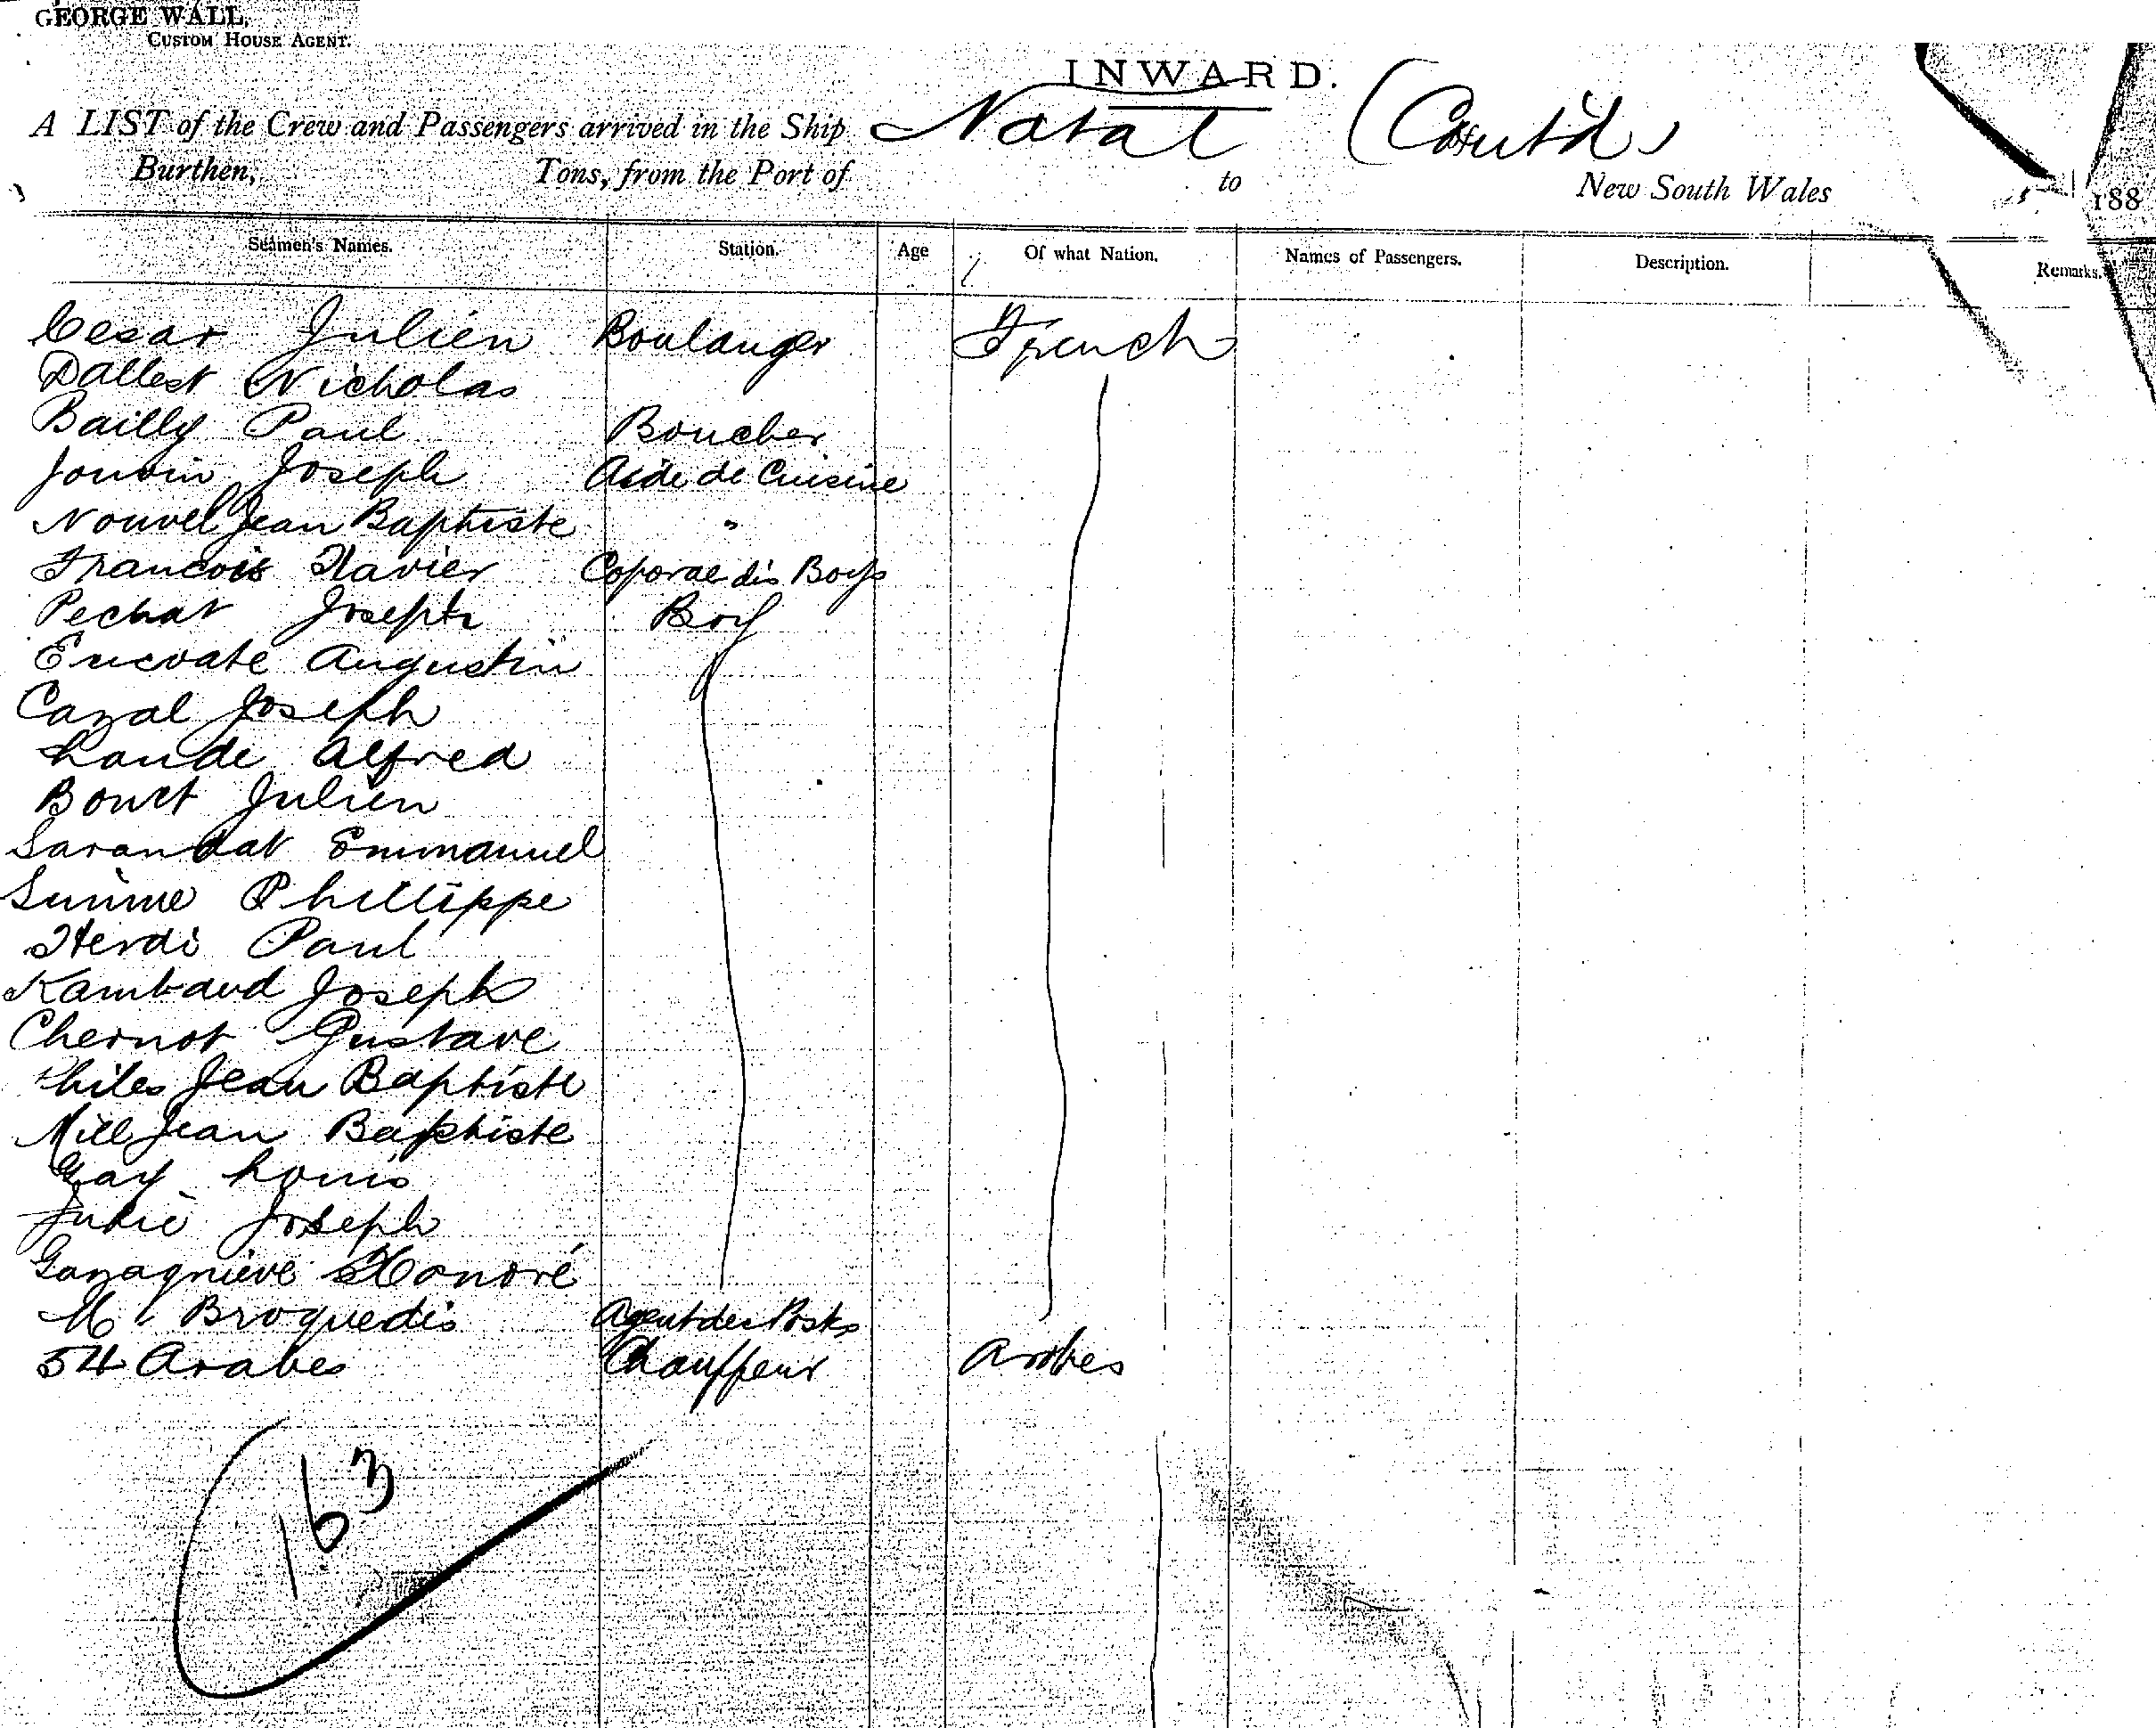 GEORGE WALL,
CUSTOM HOUSE AGENT.
INWARD.
A LIST of the Crew and Passengers arrived in the Ship Natal (Cont'd)
Burthen, Tons, from the Port of to New South Wales 188
Seamen's Names. Station. Age Of what Nation. Names of Passengers. Description. Remarks.
Cesar Julien Boulanger French
Dallest Nicholas
Bailly Paul Boucher
Jouvin Joseph Aide de Cuisine
Nouvel Jean Baptiste "
Francois Xavier Coporal dis Boys
Pechat Joseph Boy
Augustin
Cazal Joseph
Laude Alfred
Bouet Julien
Sarandat Emmanuel
Phillippe
Herdi Paul
Rambaud Joseph
Chernot Gustave
Jean Baptiste
Mill Jean Baptiste
Gay Louis
Joseph
Gazagnieve Honoré
M Broquedis Agent des Postes
54 Arabes Chauffeur Arabes
163